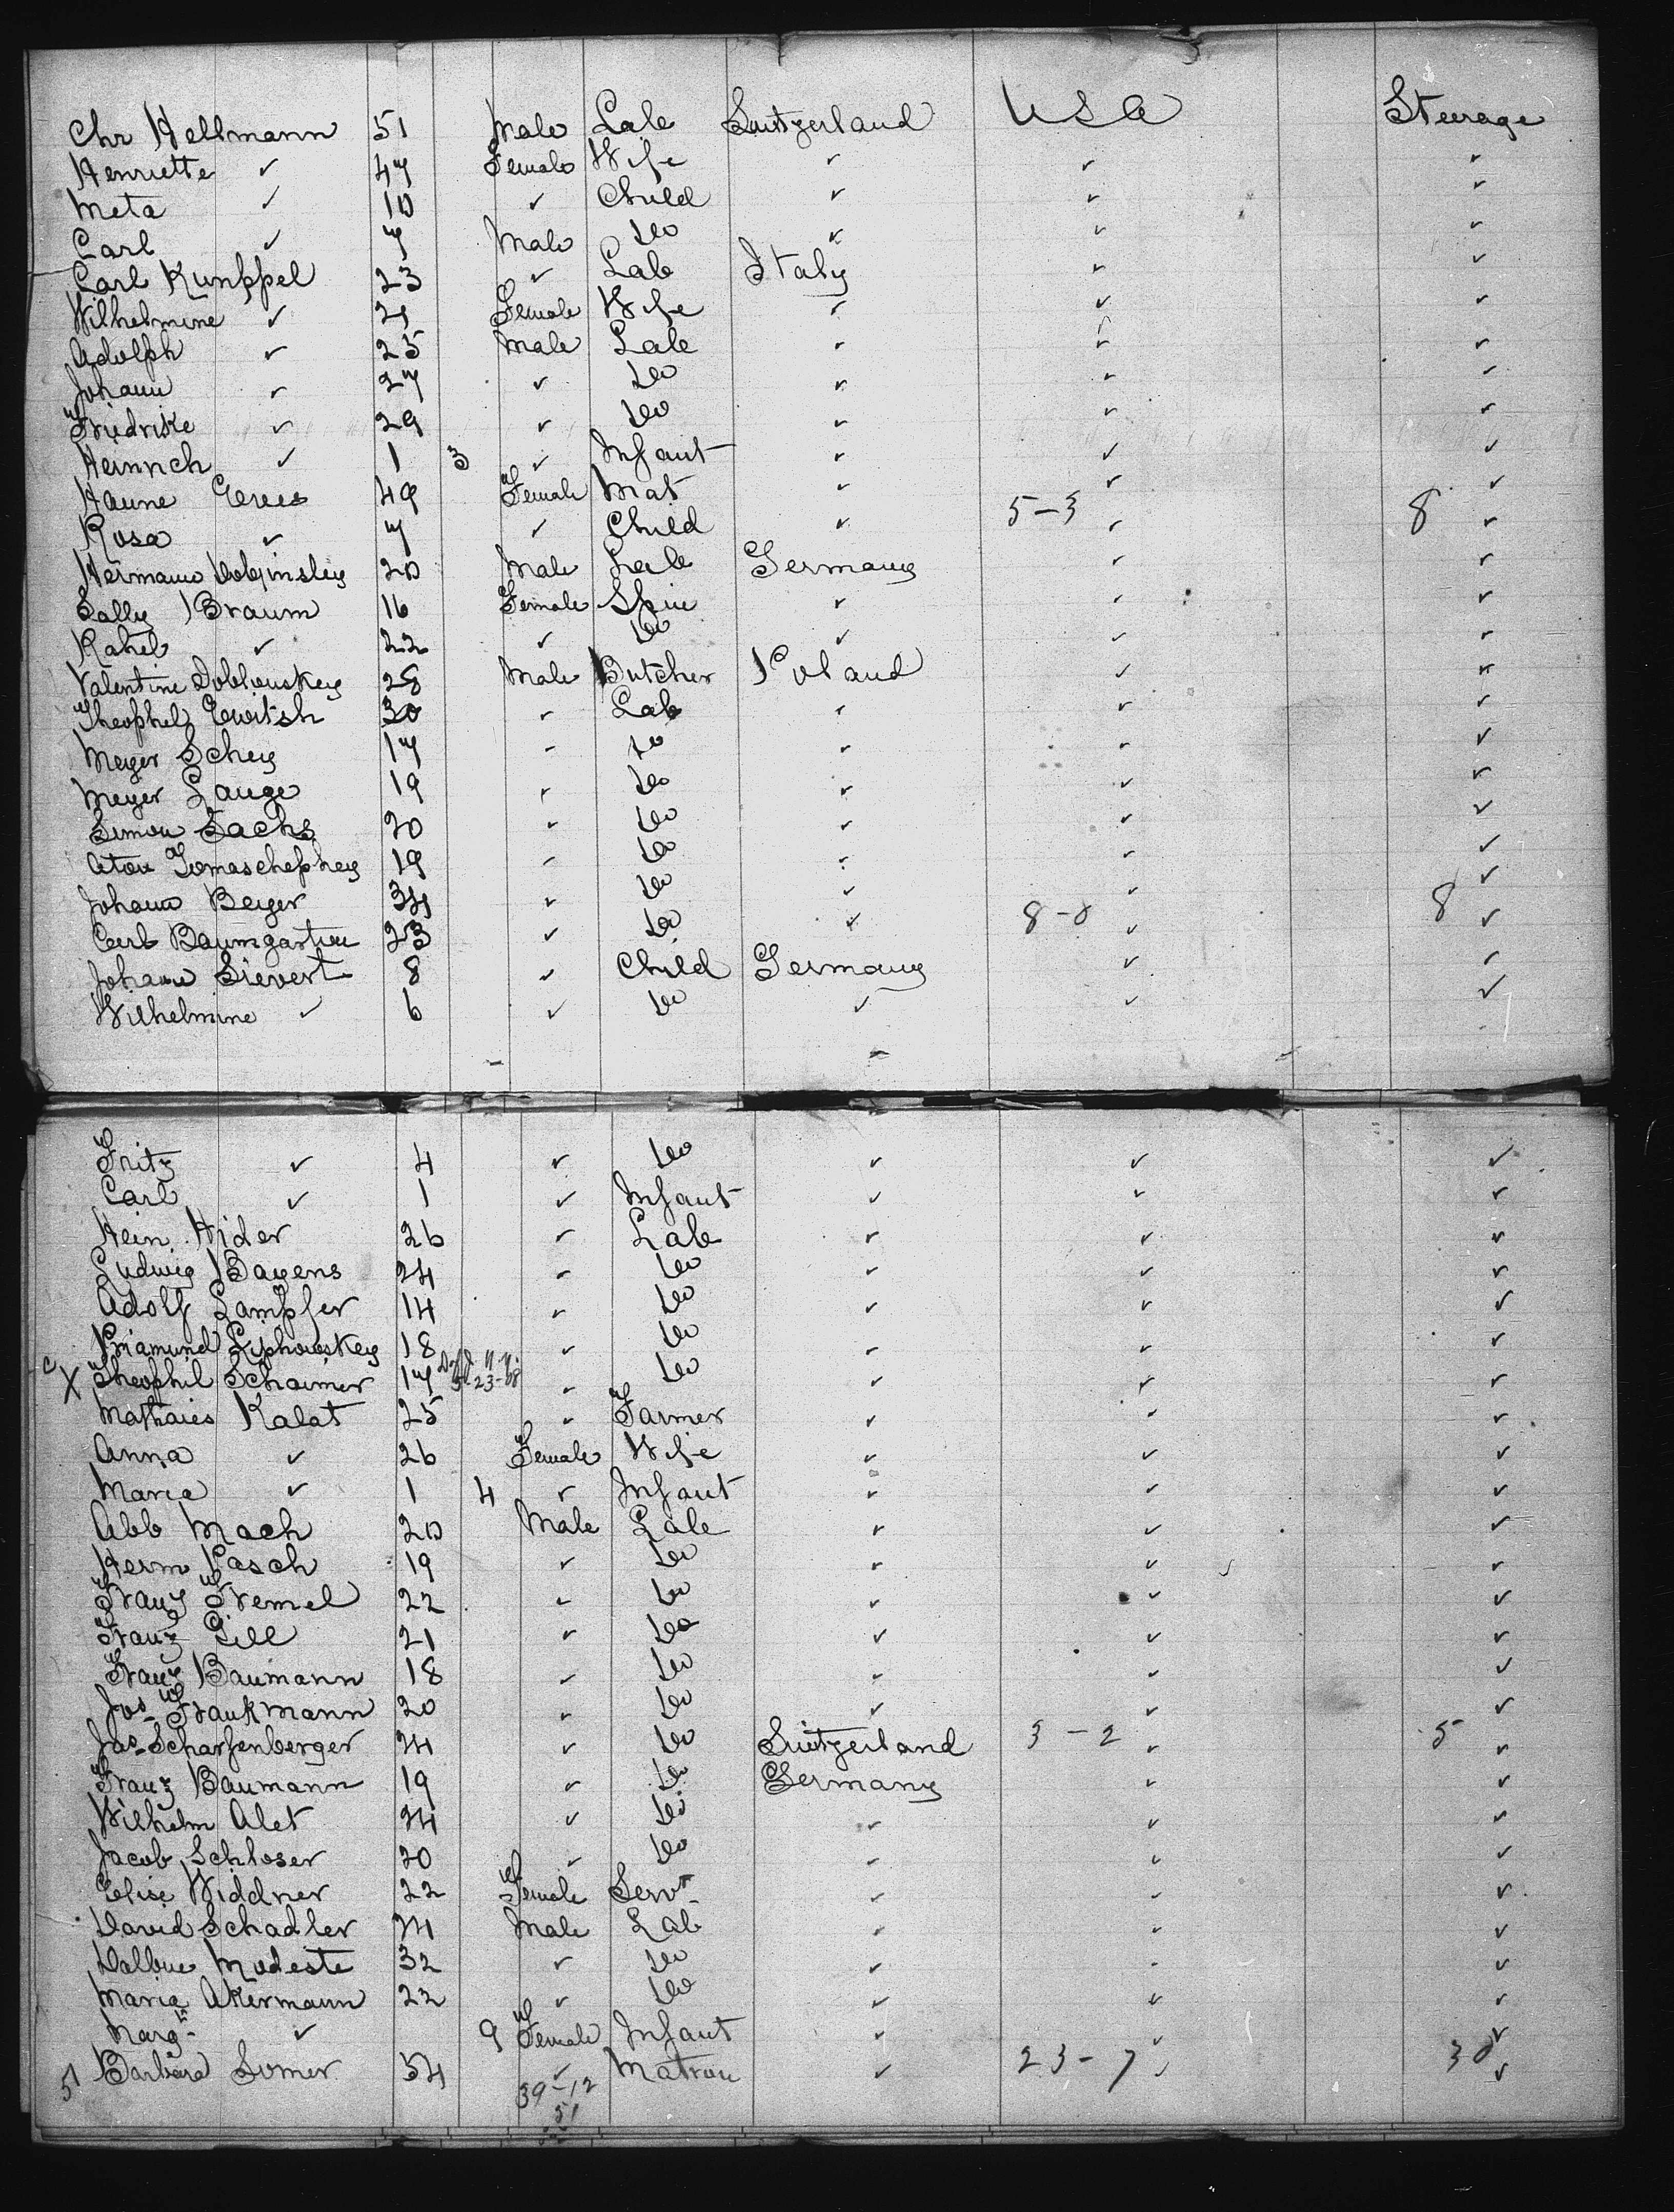 Chr Hellmann 51 Male Lab Switzerland USA Steerage
Henriette ✓ 47 Female Wife ✓ ✓ ✓
Meta ✓ 10 ✓ Child ✓ ✓ ✓
Carl ✓ 7 Male Do ✓ ✓ ✓
Carl Kunppel 23 ✓ Lab Italy ✓ ✓
Wilhelmine ✓ 21 Female Wife ✓ ✓ ✓
Adolph ✓ 25 Male Lab ✓ ✓ ✓
Johann ✓ 27 ✓ Do ✓ ✓ ✓
Friedrike ✓ 29 ✓ Do ✓ ✓ ✓
Heinrich ✓ 1 3 ✓ Infant ✓ ✓ ✓
Hanne 49 Female Mat ✓ ✓ ✓
Rosa ✓ 7 ✓ Child ✓ 5-3 ✓ 8 ✓
Hermann 20 Male Lab Germany ✓ ✓
Sally Braum 16 Female Spin ✓ ✓ ✓
Rahel ✓ 22 ✓ Do ✓ ✓ ✓
Valentine Doblouskey 28 Male Butcher Poland ✓ ✓
Theophel Ewitsh 30 ✓ Lab ✓ ✓ ✓
Meyer Schey 17 ✓ Do ✓ ✓ ✓
Meyer Lange 19 ✓ Do ✓ ✓ ✓
Simon Sachs 20 ✓ Do ✓ ✓ ✓
Aton Tomaschephey 19 ✓ Do ✓ ✓ ✓
Johann Beyer 34 ✓ Do ✓ ✓ ✓
Carl Baumgarten 23 ✓ Do ✓ 8-0 ✓ 8 ✓
Johann Sievert 8 ✓ Child Germany ✓ ✓
Wilhelmine ✓ 6 ✓ Do ✓ ✓ ✓
Fritz ✓ 4 ✓ Do ✓ ✓ ✓
Carl ✓ 1 ✓ Infant ✓ ✓ ✓
Hein. Hider 26 ✓ Lab ✓ ✓ ✓
Ludwig Bayens 24 ✓ Do ✓ ✓ ✓
Adolf Lampfer 14 ✓ Do ✓ ✓ ✓
Priamund Liphouskey 18 ✓ Do ✓ ✓ ✓
c X Theophil Schaimer 17 5-23-08 ✓ Do ✓ ✓ ✓
Mathaies Kalat 25 ✓ Farmer ✓ ✓ ✓
Anna ✓ 26 Female Wife ✓ ✓ ✓
Maria ✓ 1 4 ✓ Infant ✓ ✓ ✓
Abb Mach 20 Male Lab ✓ ✓ ✓
Herm Pasch 19 ✓ Do ✓ ✓ ✓
Franz Fremel 22 ✓ Do ✓ ✓ ✓
Franz Gill 21 ✓ Do ✓ ✓ ✓
Franz Baumann 18 ✓ Do ✓ ✓ ✓
Jos Frankmann 20 ✓ Do ✓ ✓ ✓
Jas Scharfenberger 24 ✓ Do Switzerland 3-2 ✓ 5 ✓
Franz Baumann 19 ✓ Do Germany ✓ ✓
Wilhelm Alet 24 ✓ Do ✓ ✓ ✓
Jacob Schloser 20 ✓ Do ✓ ✓ ✓
Elise Widdner 22 Female Servt ✓ ✓ ✓
David Schadler 24 Male Lab ✓ ✓ ✓
Dalbue Modeste 32 ✓ Do ✓ ✓ ✓
Maria Akermann 22 ✓ Do ✓ ✓ ✓
Margt ✓ 9 Female Infant ✓ ✓ ✓
51 Barbara Somer 54 ✓ Matron ✓ 23-7 ✓ 30 ✓
39-12
51